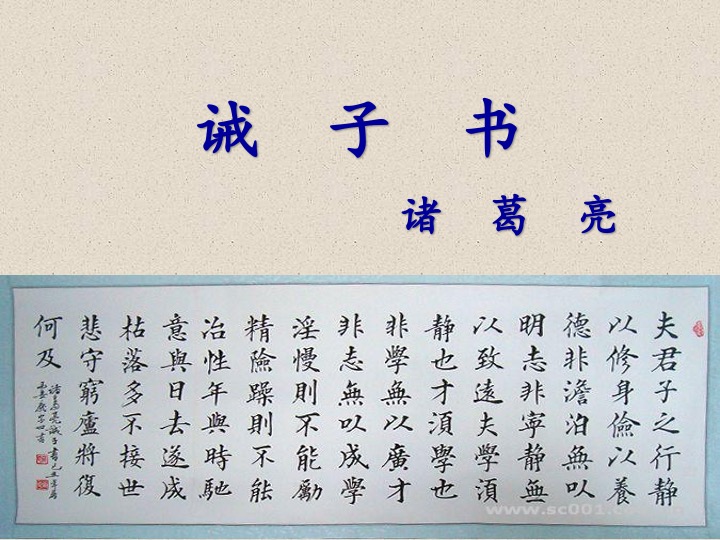 诫 子 书
诸 葛 亮
夫君子之行静
以修身儉以養
德非澹泊無以
明志非寧静無
以致遠夫學湏
静也才湏學也
非學無以廣才
非志無以成學
淫慢則不能勵
精險躁則不能
冶性年與時馳
意與日去遂成
枯落多不接世
悲守窮廬將復
何及
諸葛亮誡子書
www.sc001.com